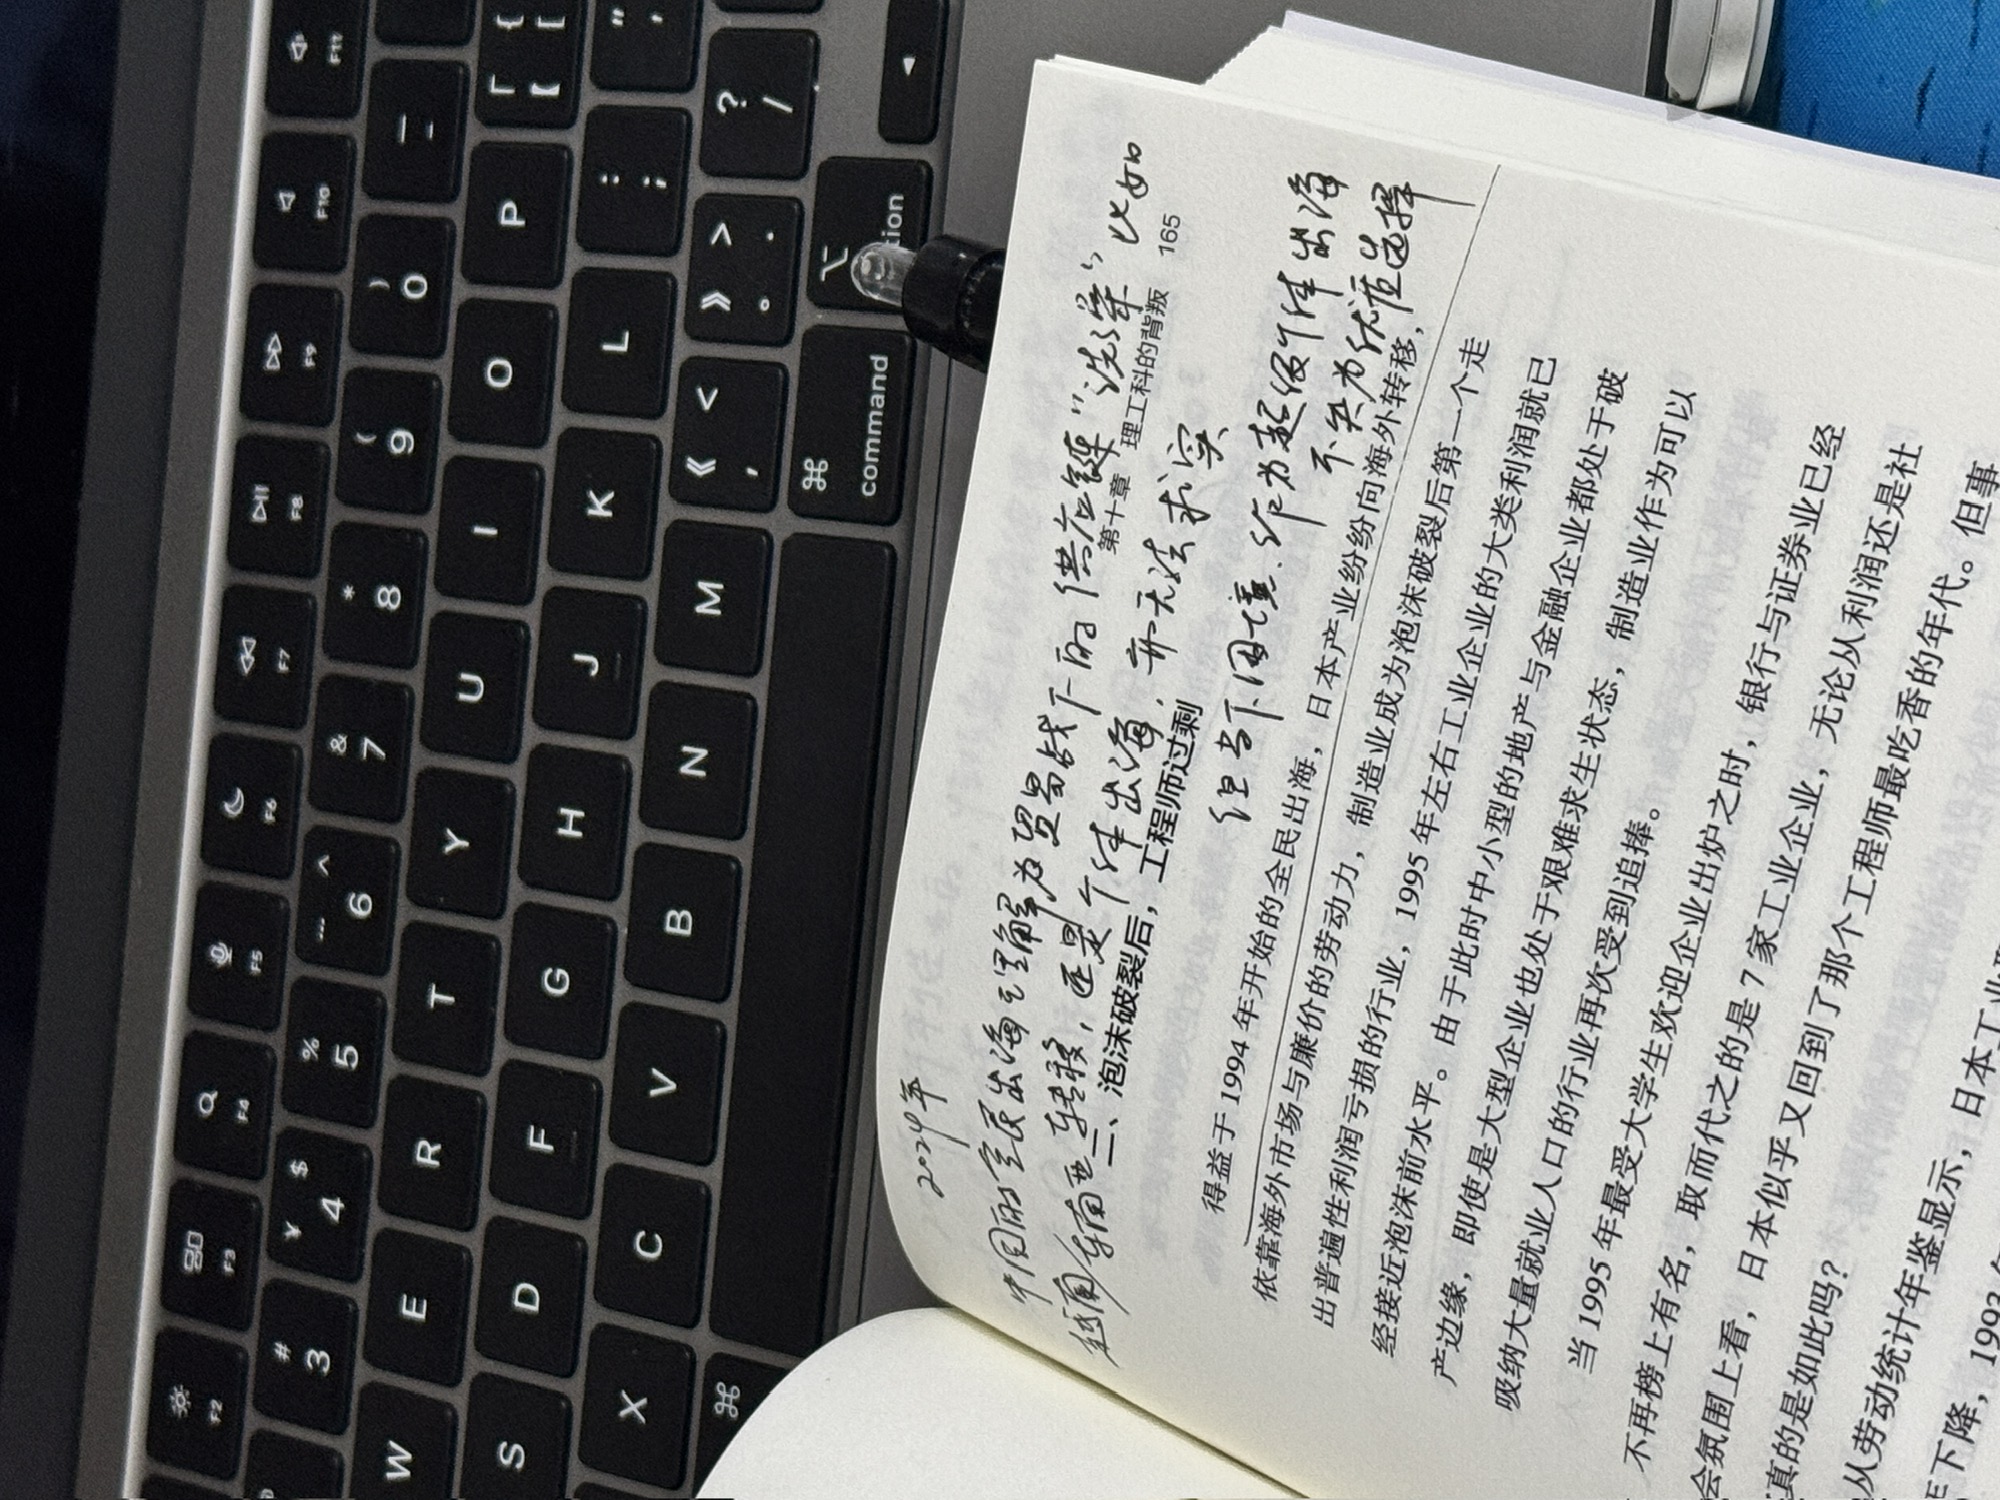 2024年
中国的全民出海可理解为贸易战下的供应链"洗澡"比如
越南/东南亚转移，还是个体出海，亦无法求实
但当下困境，作为超级个体出海
不失为优菈选择
第十章 理工科的背叛 165
二、泡沫破裂后，工程师过剩
得益于 1994 年开始的全民出海，日本产业纷纷向海外转移，
依靠海外市场与廉价的劳动力，制造业成为泡沫破裂后第一个走
出普遍性利润亏损的行业，1995 年左右工业企业的大类利润就已
经接近泡沫前水平。由于此时中小型的地产与金融企业都处于破
产边缘，即使是大型企业也处于艰难求生状态，制造业作为可以
吸纳大量就业人口的行业再次受到追捧。
当 1995 年最受大学生欢迎企业出炉之时，银行与证券业已经
不再榜上有名，取而代之的是 7 家工业企业，无论从利润还是社
会氛围上看，日本似乎又回到了那个工程师最吃香的年代。但事
真的是如此吗？
从劳动统计年鉴显示，日本工业
下降，1993
F2
F3
F4
F5
F6
F7
F8
F9
F10
F11
# 3
¥ $ 4
% 5
… ^ 6
& 7
* 8
( 9
) 0
W E R T Y U I O P 「 { 【 [
S D F G H J K L : ; " '
X C V B N M 《 < , 》 > 。 . ? /
⌘
⌘ command
⌥ tion
◀